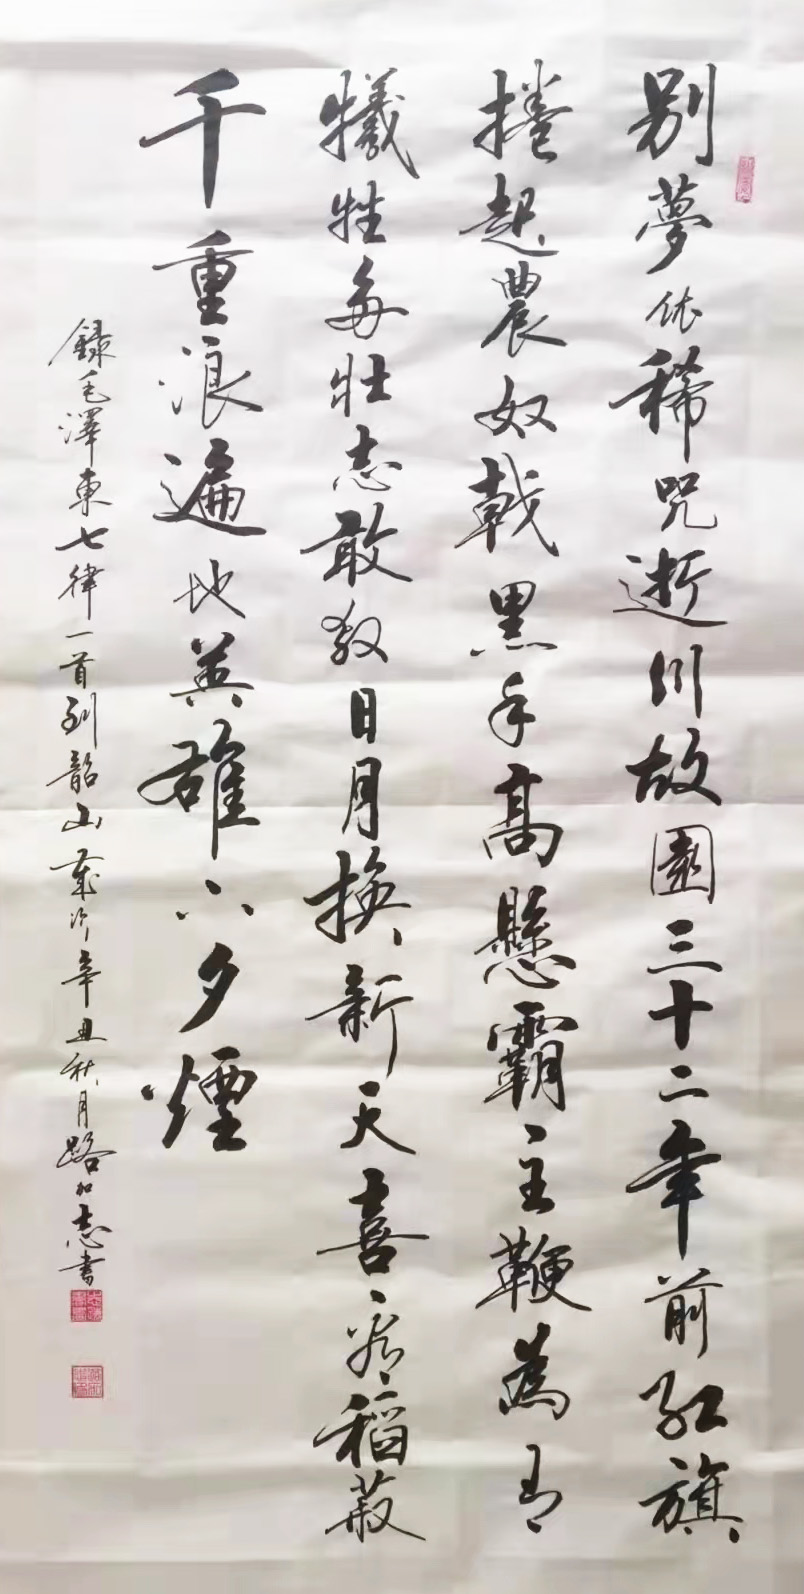 别夢依稀咒逝川故園三十二年前紅旗
捲起農奴戟黑手高懸霸主鞭為有
犧牲每壮志敢教日月換新天喜看稻菽
千重浪遍地英雄下夕煙
録毛澤東七律一首到韶山歲次辛丑秋月路志書